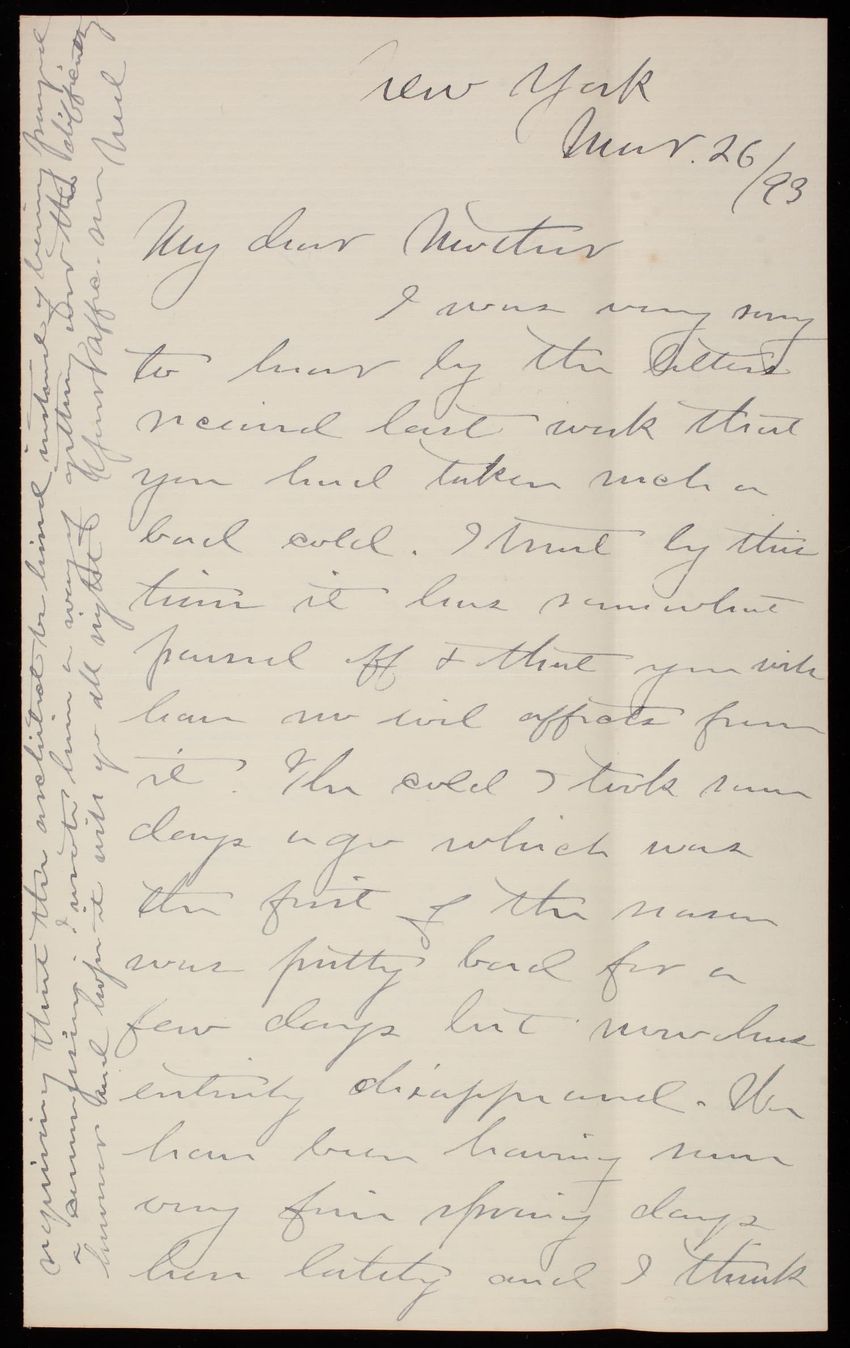 New York
Mar. 26/93
My dear Mother
I was very sorry
to hear by the letters
received last week that
you had taken such a
bad cold. I trust by this
time it has somewhat
passed off & that you will
have no evil affects from
it. The cold I took some
days ago which was
the first of the season
was pretty bad for a
few days but now has
entirely disappeared. We
have been having some
very fine spring days
here lately and I think
requiring that the architect be hired instead of being
I wrote him a way of getting over the difficulty
and hope it will go all right & Your affec. son
Neil